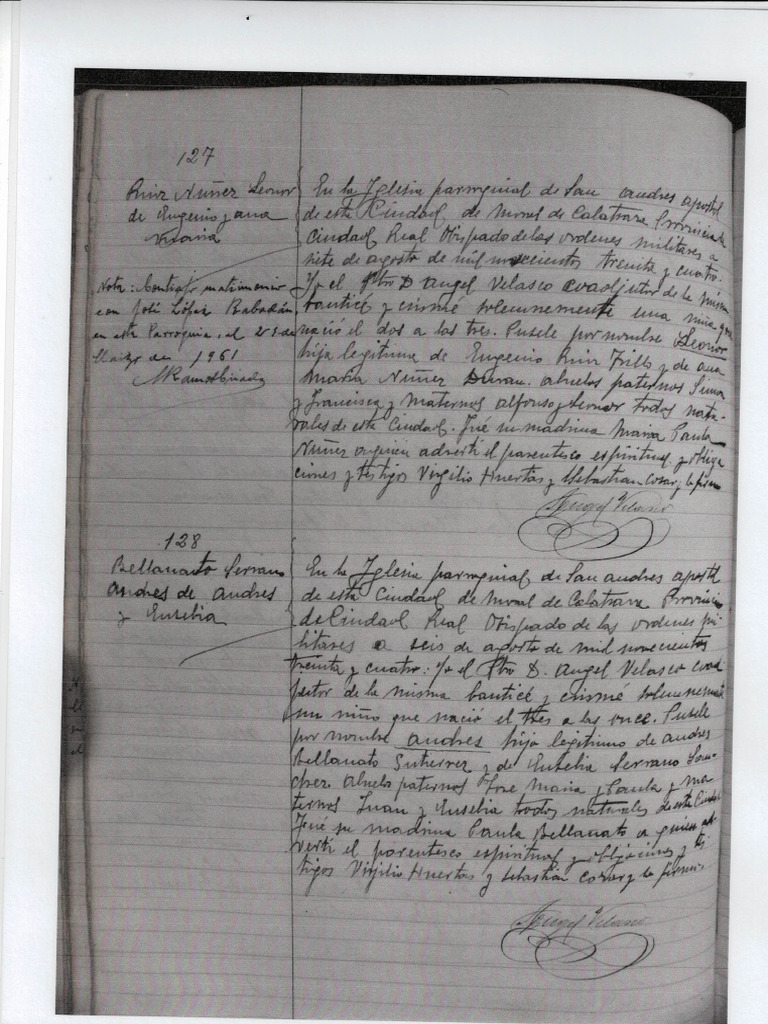 127
Ruiz Nuñez Leonor
de Eugenio y ana
maria
Nota: Contrajo matrimonio
con José López Rabadán,
en esta Parroquia, el 25 de
Marzo de 1961
En la Iglesia parroquial de San andres apostol
de esta Ciudad, de Moral de Calatrava Provincia de
Ciudad Real Obispado de las ordenes militares a
siete de agosto de mil novecientos treinta y cuatro.
Yo el Pbro D. Angel Velasco coadjutor de la misma
bauticé y crismé solemnemente una niña que
nació el dos a las tres. Pusele por nombre Leonor
hija legitima de Eugenio Ruiz Trillo y de ana
Maria Nuñez Duran. abuelos paternos
y Francisca y maternos alfonso y Leonor todos natu-
rales de esta Ciudad. Fué su madrina Maria Paula
Nuñez a quien adverti el parentesco espiritual y obliga
ciones y testigos Virgilio Huertas y Sebastian Cozar y lo firmo
Angel Velasco
128
Bellanato Serrano
Andres de andres
y Eusebia
En la Iglesia parroquial de San andres apostol
de esta Ciudad de Moral de Calatrava Provincia
de Ciudad Real Obispado de las ordenes mi-
litares a seis de agosto de mil novecientos
treinta y cuatro: Yo el Pbro D. Angel Velasco coad
jutor de la misma bauticé y crismé solemnemente
un niño que nació el tres a las once. Pusele
por nombre andres hijo legitimo de andres
Bellanato Gutierrez y de Eusebia Serrano San-
chez. abuelos paternos Jose Maria y Paula y ma-
ternos Juan y Eusebia todos naturales de esta Ciudad
Fué su madrina Paula Bellanato a quien ad
verti el parentesco espiritual y obligaciones y tes
tigos Virgilio Huertas y Sebastián Cozar y lo firmo.
Angel Velasco